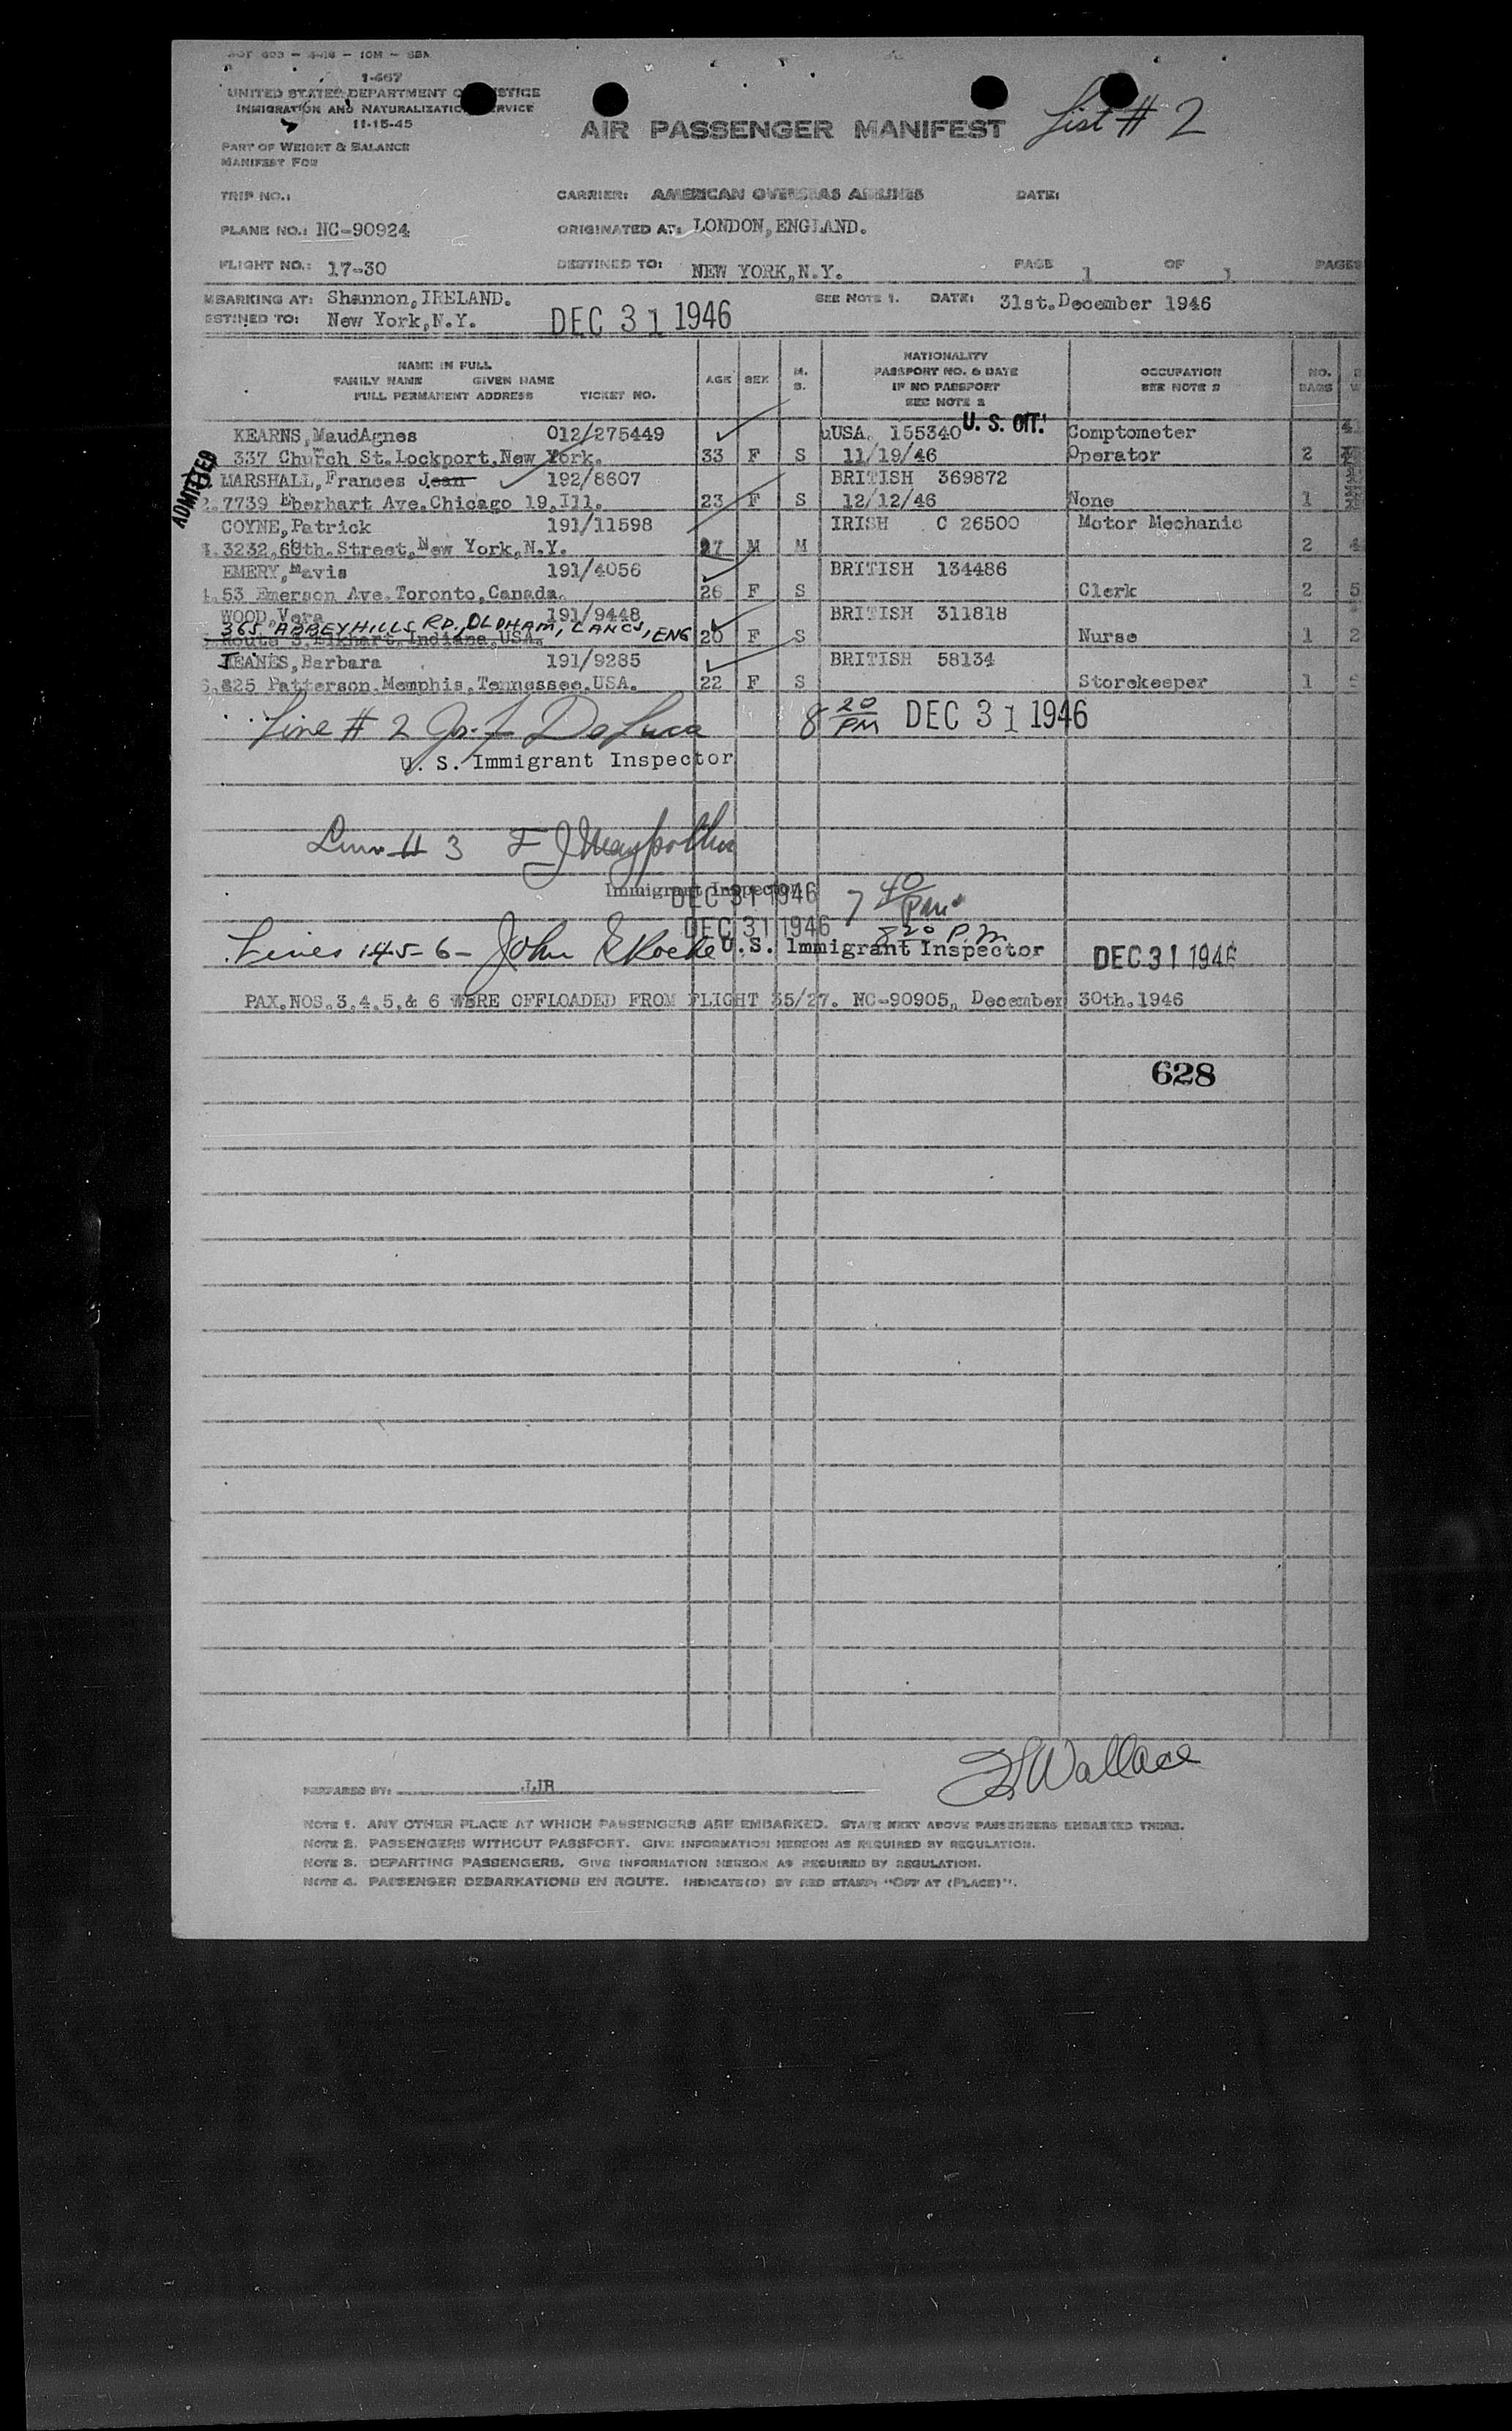 1-467
UNITED STATES DEPARTMENT OF JUSTICE
IMMIGRATION AND NATURALIZATION SERVICE
11-15-45
AIR PASSENGER MANIFEST List # 2
PART OF WEIGHT & BALANCE
MANIFEST FOR
TRIP NO.: CARRIER: AMERICAN OVERSEAS AIRLINES DATE:
PLANE NO.: NC-90924 ORIGINATED AT: LONDON,ENGLAND.
FLIGHT NO.: 17-30 DESTINED TO: NEW YORK,N.Y. PAGE 1 OF 1 PAGES
MBARKING AT: Shannon,IRELAND. SEE NOTE 1. DATE: 31st.December 1946
ESTINED TO: New York,N.Y. DEC 31 1946
NAME IN FULL
FAMILY NAME GIVEN NAME
FULL PERMANENT ADDRESS TICKET NO. AGE SEX M. S. NATIONALITY PASSPORT NO. & DATE IF NO PASSPORT SEE NOTE 2 OCCUPATION SEE NOTE 2 NO. BAGS
KEARNS,MaudAgnes 012/275449 uUSA. 155340 U. S. CIT. Comptometer
337 Church St.Lockport,New York. 33 F S 11/19/46 Operator 2
ADMITTED
MARSHALL,Frances Jean 192/8607 BRITISH 369872
2.7739 Eberhart Ave.Chicago 19.Ill. 23 F S 12/12/46 None 1
COYNE,Patrick 191/11598 IRISH C 26500 Motor Mechanic
3232,68th.Street,New York,N.Y. 27 M M 2 4
EMERY,Mavis 191/4056 BRITISH 134486
53 Emerson Ave.Toronto,Canada. 26 F S Clerk 2 5
WOOD,Vera 191/9448 BRITISH 311818
365 ABBEYHILLS RD., OLDHAM, LANCS, ENG
Route 3,Elkhart,Indiana,USA. 20 F S Nurse 1 2
JEANES,Barbara 191/9285 BRITISH 58134
825 Patterson.Memphis,Tennessee.USA. 22 F S Storekeeper 1
Line # 2 Jos. F DeLuca 8 20 PM DEC 31 1946
U. S. Immigrant Inspector
Line # 3 F J
Immigrant Inspector DEC 31 1946 7 40 PM
DEC 31 1946 8 20 P.M
Lines 1-4-5-6- John E Roche U.S. Immigrant Inspector DEC 31 1946
PAX.NOS.3,4,5,& 6 WERE OFFLOADED FROM FLIGHT 35/27. NC-90905, December 30th.1946
628
PREPARED BY: JJR Wallace
NOTE 1. ANY OTHER PLACE AT WHICH PASSENGERS ARE EMBARKED. STATE NEXT ABOVE PASSENGERS EMBARKED THERE.
NOTE 2. PASSENGERS WITHOUT PASSPORT. GIVE INFORMATION HEREON AS REQUIRED BY REGULATION.
NOTE 3. DEPARTING PASSENGERS. GIVE INFORMATION HEREON AS REQUIRED BY REGULATION.
NOTE 4. PASSENGER DEBARKATIONS EN ROUTE. INDICATE(D) BY RED STAMP: "OFF AT (PLACE)".